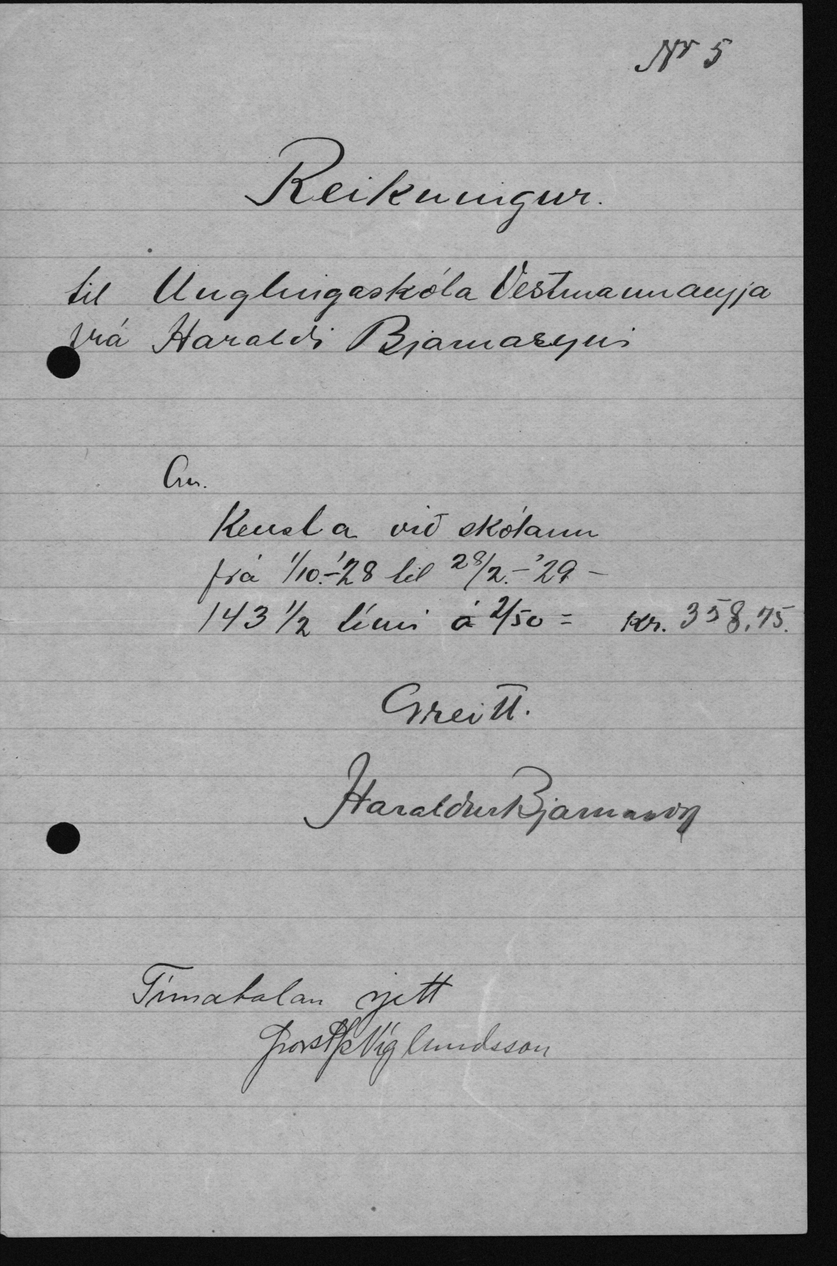 Nr 5
Reikningur.
til Unglingaskóla Vestmannaeyja
frá Haraldi Bjarnasyni
Kensla við skólann
frá 1/10.-'28 til 28/2.-'29 -
143 1/2 tími á 2/50 = Kr. 358,75.
Greitt.
Haraldur Bjarnason
Tímatalan rjett
Þorst Þ Víglundsson